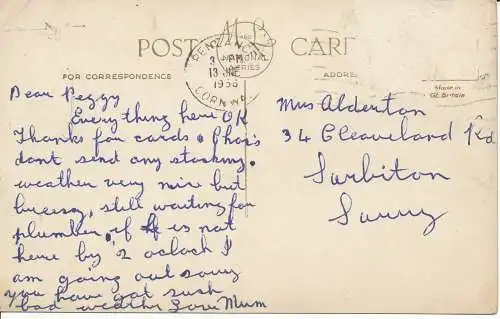 POST CARD
NATIONAL
SERIES
PENZANCE
13 JNE
1956
CORNWALL
FOR CORRESPONDENCE
ADDRESS
Made in
Gt. Britain
Dear Peggy
Everything here OK
Thanks for cards.
dont send any stocking.
weather very nice but
breezy, still waiting for
plumber, if is not
here by 2 oclock I
am going out sorry
you have got such
bad weather Love Mum
Mrs Alderton
34 Cleaveland Rd
Surbiton
Surrey